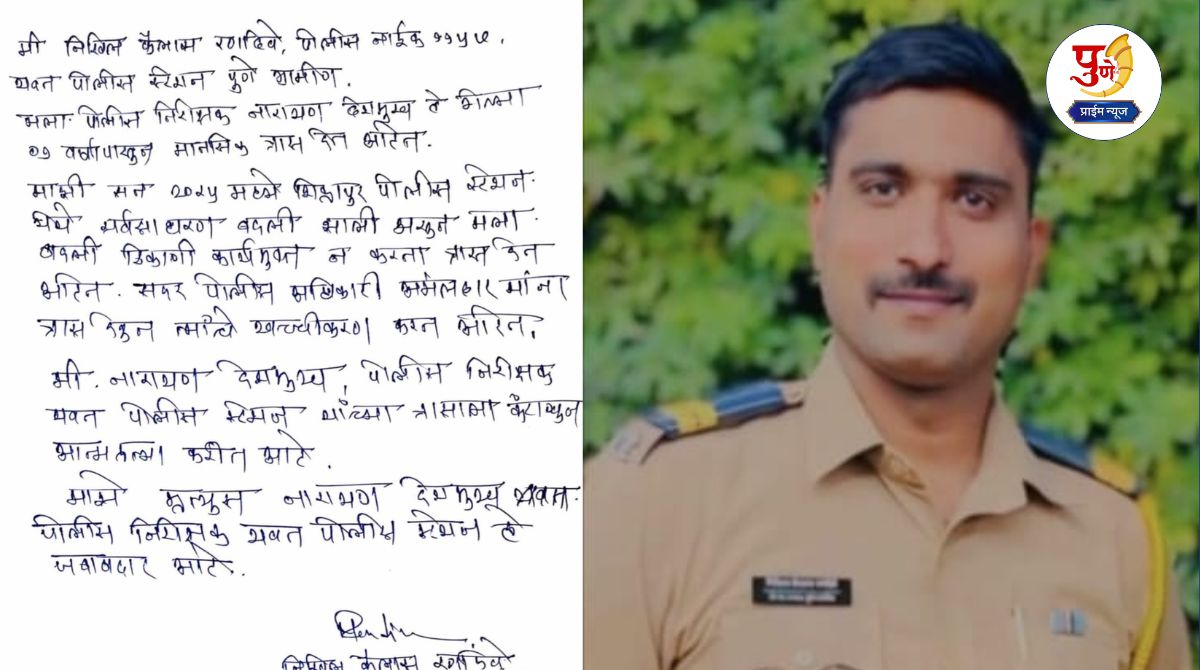 मी निखिल कैलास रणदिवे, पोलीस नाईक
यवत पोलीस स्टेशन पुणे ग्रामीण.
मला पोलीस निरीक्षक नारायण देशमुख हे मागील
०१ वर्षापासुन मानसिक त्रास देत आहेत.
माझी सन २०२५ मध्ये शिक्रापुर पोलीस स्टेशन
येथे सर्वसाधारण बदली झाली असुन मला
बदली ठिकाणी कार्यमुक्त न करता त्रास देत
आहेत. सदर पोलीस अधिकारी अंमलदार यांना
त्रास देवुन त्यांचे खच्चीकरण करत आहेत.
मी. नारायण देशमुख, पोलीस निरीक्षक
यवत पोलीस स्टेशन यांच्या त्रासाला कंटाळुन
आत्महत्या करीत आहे.
माझे मृत्युस नारायण देशमुख
पोलीस निरीक्षक यवत पोलीस स्टेशन हे
जबाबदार आहे.
निखिल कैलास रणदिवे
पुणे
प्राईम न्यूज